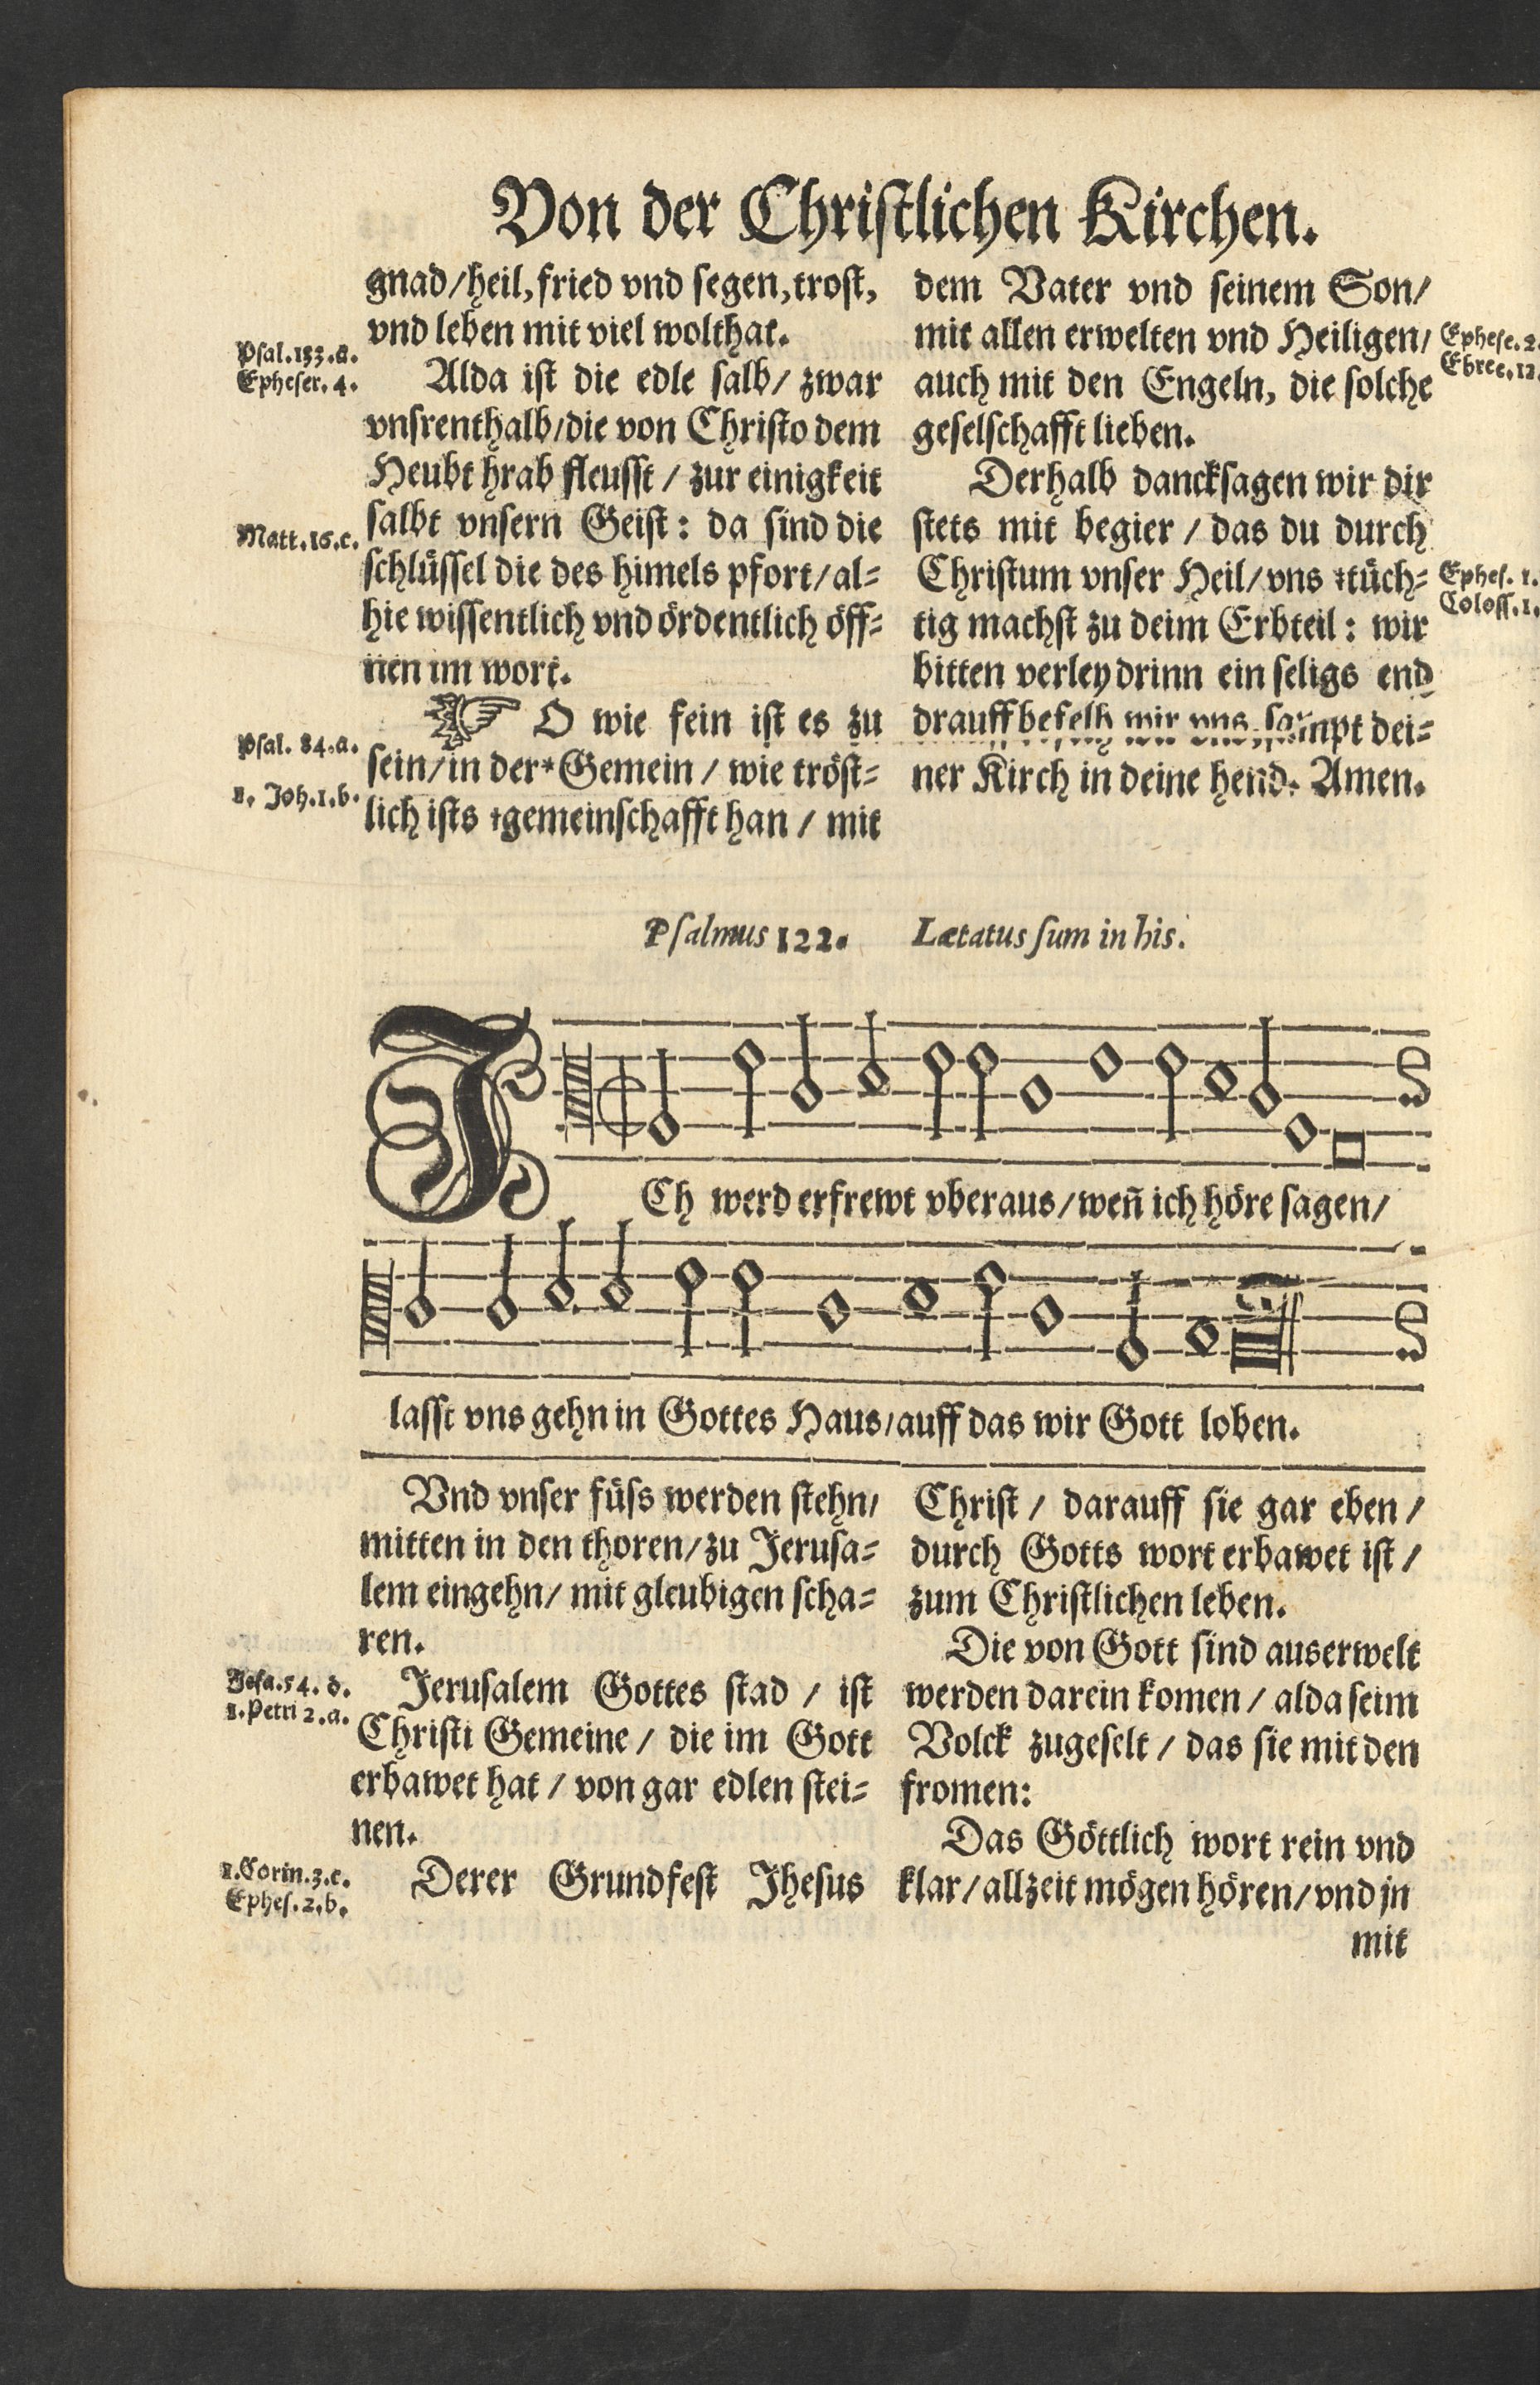 Von der Christlichen Kirchen.
gnad/heil, fried vnd segen, trost,
vnd leben mit viel wolthat.
Psal.133.a.
Epheser. 4.
Alda ist die edle salb/ zwar
vnsrenthalb/die von Christo dem
Heubt hrab fleusst / zur einigkeit
salbt vnsern Geist: da sind die
Matt.16.c.
schlüssel die des himels pfort/al-
hie wissentlich vnd ördentlich öff-
nen im wort.
O wie fein ist es zu
Psal. 84.a.
sein/in der*Gemein / wie tröst-
1. Joh.1.b.
lich ists †gemeinschafft han / mit
dem Vater vnd seinem Son/
mit allen erwelten vnd Heiligen/
Ephese.2.
Ebree.12.
auch mit den Engeln, die solche
geselschafft lieben.
Derhalb dancksagen wir dir
stets mit begier / das du durch
Christum vnser Heil/vns †tüch-
Ephes. 1.
Coloss.1.
tig machst zu deim Erbteil: wir
bitten verley drinn ein seligs end
drauff befelh wir vns, sampt dei-
ner Kirch in deine hend. Amen.
Psalmus 122. Lætatus sum in his.
ICh werd erfrewt vberaus/weñ ich höre sagen/
lasst vns gehn in Gottes Haus/auff das wir Gott loben.
Vnd vnser füss werden stehn/
mitten in den thoren/zu Jerusa-
lem eingehn/ mit gleubigen scha-
ren.
Jesa.54. d.
1.Petri 2.a.
Jerusalem Gottes stad / ist
Christi Gemeine / die im Gott
erbawet hat / von gar edlen stei-
nen.
1.Corin.3.c.
Ephes.2.b.
Derer Grundfest Jhesus
Christ / darauff sie gar eben /
durch Gotts wort erbawet ist /
zum Christlichen leben.
Die von Gott sind auserwelt
werden darein komen / alda seim
Volck zugeselt / das sie mit den
fromen:
Das Göttlich wort rein vnd
klar/allzeit mögen hören/vnd jn
mit